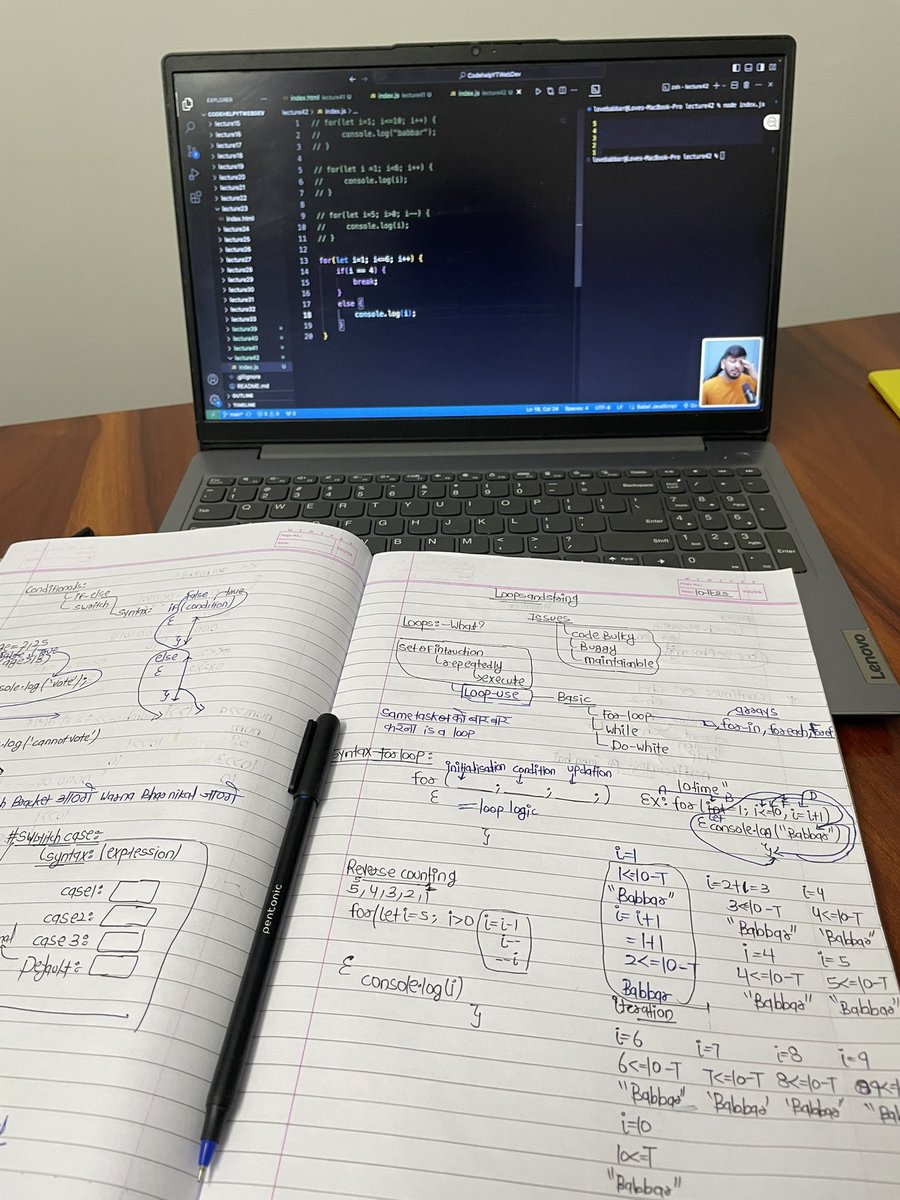 CodehelpYTWebDev
EXPLORER
CODEHELPYTWEBDEV
lecture15
lecture16
lecture17
lecture18
lecture19
lecture20
lecture21
lecture22
lecture23
index.html
lecture24
lecture25
lecture26
lecture27
lecture28
lecture29
lecture30
lecture31
lecture32
lecture33
lecture39
lecture40
lecture41
lecture42
index.js U
.gitignore
README.md
OUTLINE
TIMELINE
index.html lecture41 U
index.js lecture41 U
index.js lecture42 U
lecture42 > index.js > ...
1 // for(let i=1; i<=10; i++) {
2 // console.log("babbar");
3 // }
4
5 // for(let i =1; i<6; i++) {
6 // console.log(i);
7 // }
8
9 // for(let i=5; i>0; i--) {
10 // console.log(i);
11 // }
12
13 for(let i=1; i<=6; i++) {
14 if(i == 4) {
15 break;
16 }
17 else {
18 console.log(i);
19 }
20 }
zsh - lecture42
lovebabbar@Loves-MacBook-Pro lecture42 % node index.js
5
4
3
2
1
lovebabbar@Loves-MacBook-Pro lecture42 %
main*
Ln 18, Col 24 Spaces: 4 UTF-8 LF Babel JavaScript
Lenovo
pentonic
Conditionals:
if-else
switch
syntax: if(condition)
false true
{
}
else
{
}
console.log('vote');
.log('cannot vote')
Bracket
#Switch case:
syntax: (expression)
case1:
case2:
case 3:
Default:
Page No.:
Date:
YOUVA
Page No.:
Date: 10-11-25
YOUVA
Loops and string
Loops:- What?
Issues
code Bulky
Buggy
maintainable
Set of intruction
repeatedly
execute
Loop-use
Basic
For-loop
arrays
for-in, foreach, Forof
While
Do-white
Same task को बार बार
करना is a loop
Syntax-for loop:
initialisation condition updation
for ( ; ; ;)
{
= loop logic
}
10 time"
Ex: for (i=1; i<=10, i=i+1)
let
A B D
{ console.log("Babbar")
}
Reverse counting
5,4,3,2,1
for(let i=5, i>0 i=i-1
i--
--i
{
console.log(i)
}
i=1
1<=10-T
"Babbar"
i=i+1
=1+1
2<=10-T
Babbar
iteration
i=2+1=3
3<=10-T
"Babbar"
i=4
4<=10-T
"Babbar"
i=4
4<=10-T
"Babbar"
i=5
5<=10-T
"Babbar"
i=6
6<=10-T
"Babbar"
i=7
7<=10-T
'Babbar'
i=8
8<=10-T
'Babbar'
i=9
9<=10
i=10
10<=T
"Babbar"